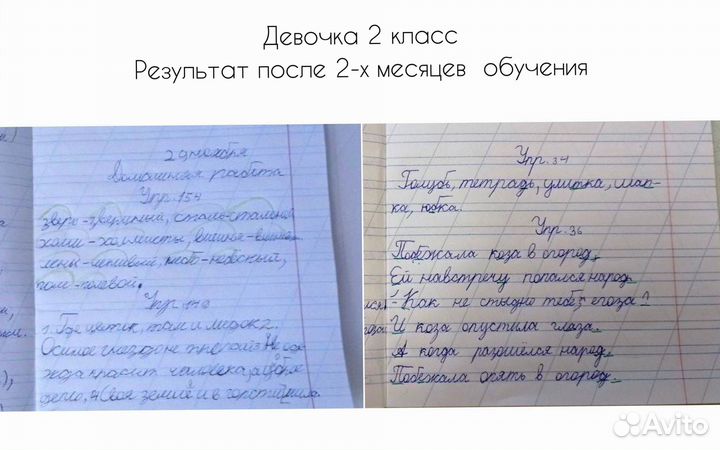 Девочка 2 класс
Результат после 2-х месяцев обучения
29 ноября
Домашняя работа
Упр. 154
холм-холмисты,
поле-полевой.
Упр. 170
1. Где цветик, там и медок 2.
Осиное гнездо не
человека, а
дело, 4. Своя земля и в горсти мила.
Упр. 34
Голубь, тетрадь, улитка, шап-
ка, юбка.
Упр. 36
Побежала коза в огород.
Ей навстречу попался народ.
- Как не стыдно тебе, егоза?
И коза опустила глаза.
А когда разошёлся народ,
Побежала опять в огород.
Avito